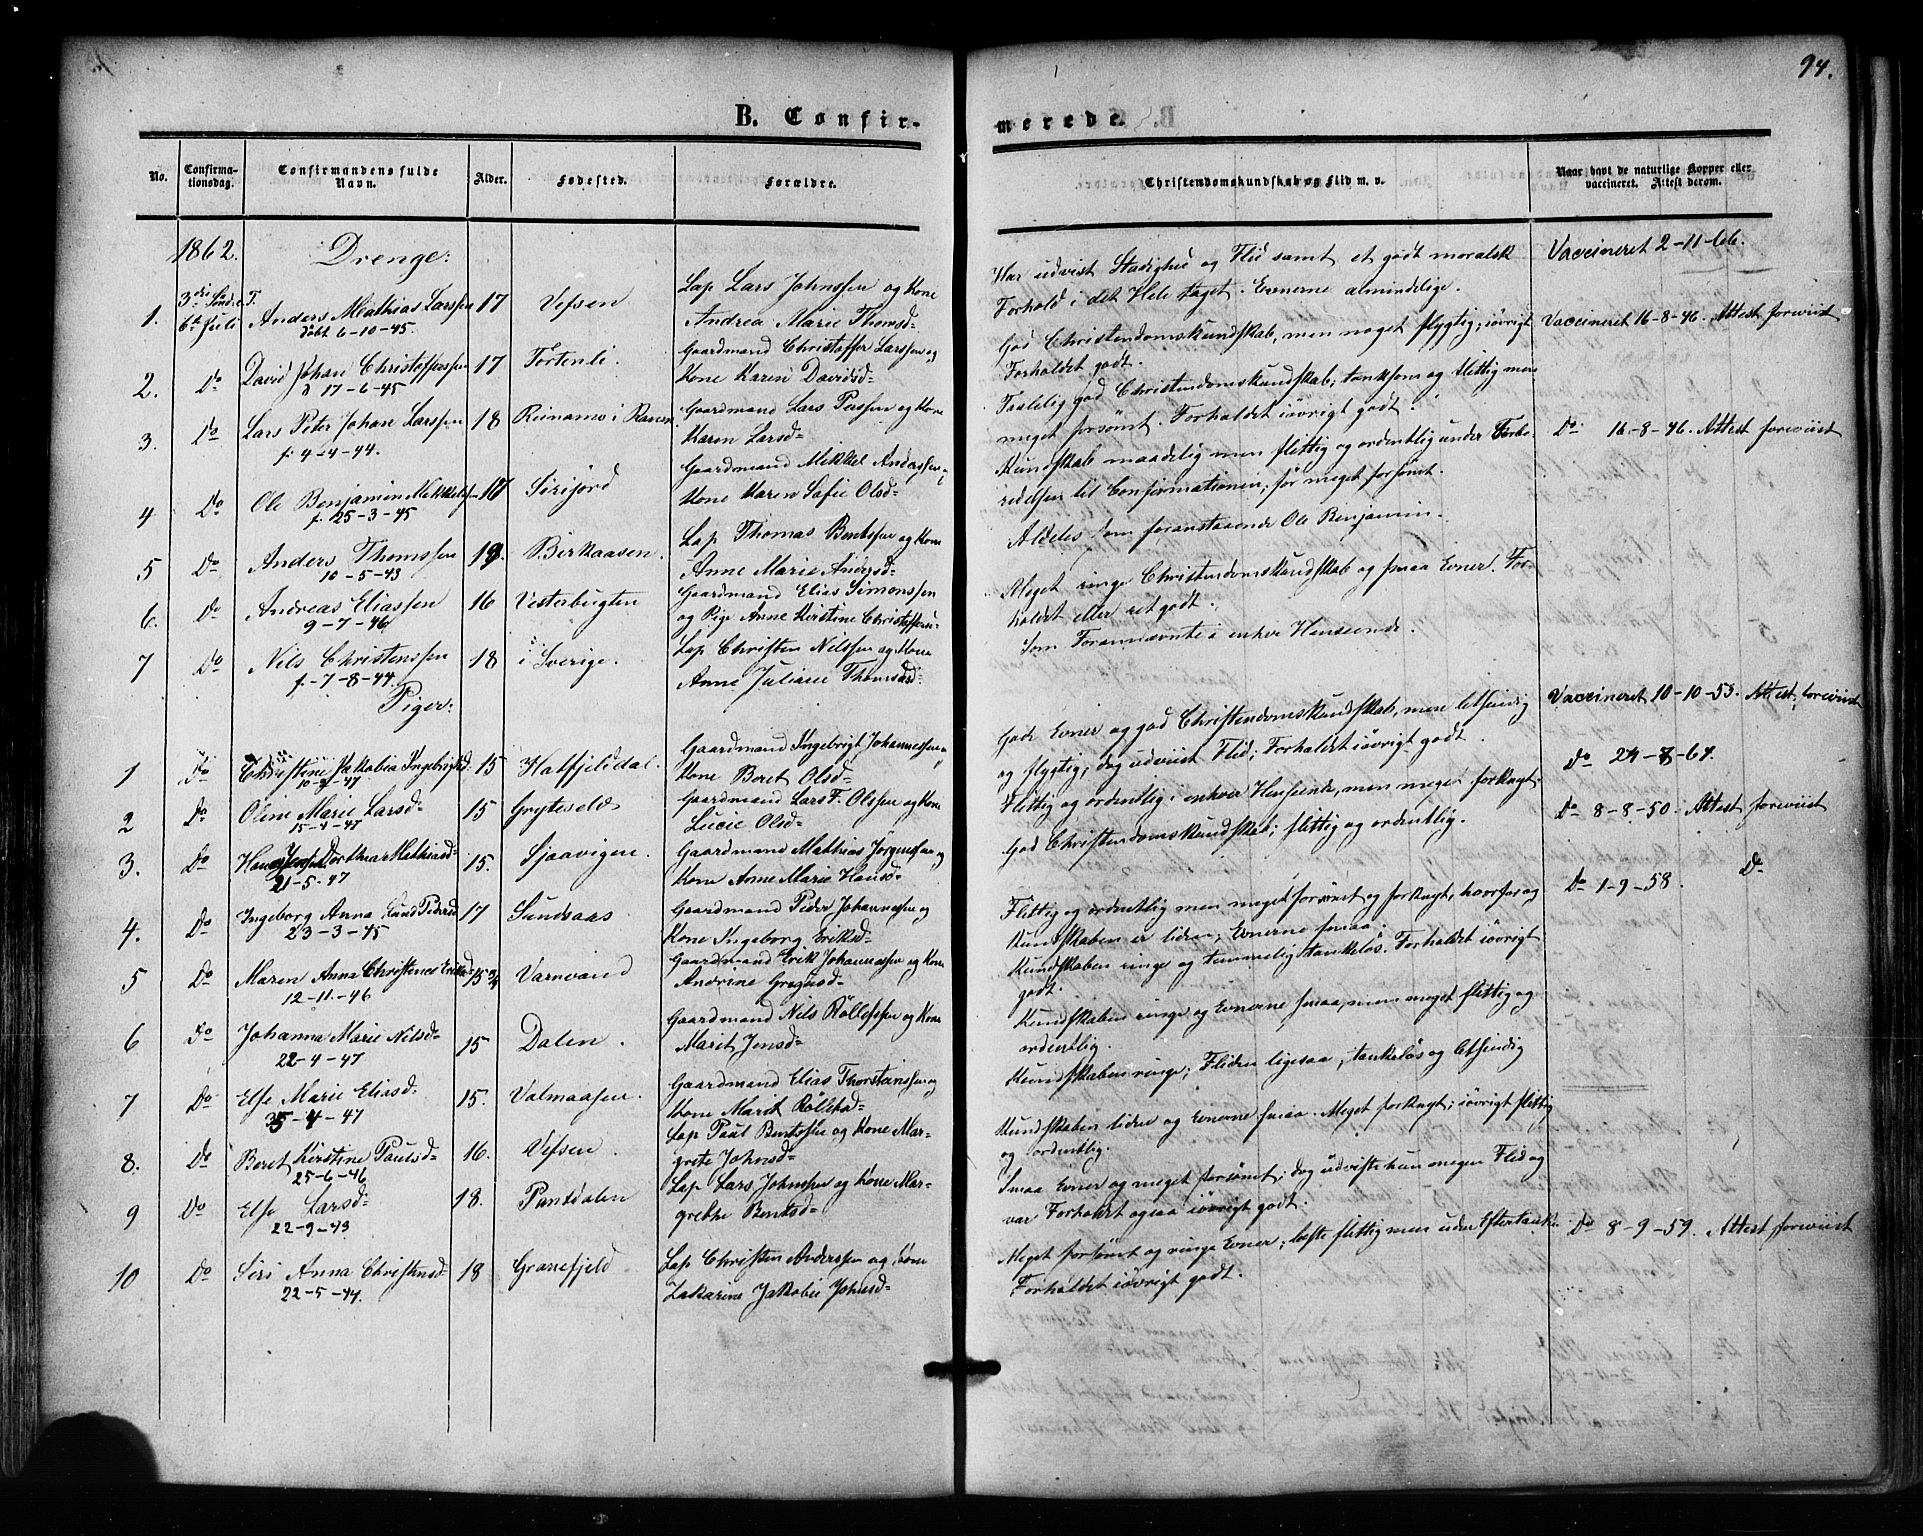 94.
B. Confir-
merede.
No.
Confirma-
tionsdag.
Confirmandens fulde
Navn.
Alder.
Fødested.
Forældre.
Christendomskundskab og Flid m. v.
Naar havt de naturlige Kopper eller
vaccineret. Attest derom.
1862.
Drenge:
1.
6te Juli
Anders Mathias Larssen
født 6-10-45.
17
Vefsen
Lap Lars Johnssen og Kone
Andrea Marie Thomsd=
Har udvist Stadighed og Flid samt et godt moralsk
Forhold i det Hele taget. Evnerne almindelige.
Vaccineret 2-11-
2.
Do
David Johan Christoffersen
17-6-45
17
Tortenli.
Gaardmand Christoffer Larssen og
Kone Karen Davidsd=
God Christendomskundskab, men noget flygtig; iøvrigt
Forholdet godt.
Vaccineret 16-8-46. Attest foreviist
3.
Do
Lars Peter Johan Larssen
f. 4-4-44.
18
Reinamo i Ranen
Gaardmand Lars Perssen og Kone
Karen Larsd=
Taalelig god Christendomskundskab; tænksom og flittig men
meget forsømt. Forholdet iøvrigt godt.
Do 16-8-46. Attest foreviist
4
Do
Ole Benjamin Mikkelsen
f. 25-3-45
17
Sirijord
Gaardmand Mikkel Andersen
Kone Karen Sofie Olsd=
Kundskab maadelig men flittig og ordentlig under Forbe-
redelsen til Confirmationen; før meget forsømt.
5
Do
Anders Thomssen
10-5-43
19.
Birkaasen.
Lap Thomas Bentssen og Kone
Anne Marie Andersd=
Aldeles som foranstaaende Ole Benjamin.
6.
Do
Andreas Eliassen
9-7-46
16
Vesterbugten
Gaardmand Elias Simonssen
og Pige Anne Kirstine Christoffersd
Meget ringe Christendomskundskab og smaa Evner. For-
holdet eller ret godt.
7
Do
Nils Christenssen
f. 7-8-44.
18
i Sverige.
Lap Christen Nilssen og Kone
Anne Juliane Thomasd
Som Forannævnte i enhver Henseende.
Piger:
1
Do
Christine Jakobia Ingebrigtsd.
15
Hatfjeldal.
Gaardmand Ingebrigt Johannessen
Kone Beret Olsd=
Gode Evner og god Christendomskundskab, men letsindig
og flygtig; dog udviist Flid; Forholdet iøvrigt godt.
Vaccineret 10-10-53. Attest foreviist
2
Do
Oline Marie Larsd=
15-4-47
15
Grytesels
Gaardmand Lars F. Olssen og Kone
Lucie Olsd=
Flittig og ordentlig i enhver Henseende, men meget forknyt.
Do 24-8-61.
3.
Do
Dorthea Mathiasd=
21-5-47
15.
Sjaavigen.
Gaardmand Mathias Jørgenssen og
Kone Anne Marie Hansd=
God Christendomskundskab; flittig og ordentlig.
Do 8-8-50. Attest foreviist
4.
Do
Ingeborg Anna Lund Pedersd
23-3-45
17
Sundsaas
Gaardmand Peder Johannessen og
Kone Ingeborg Eriksd=
Flittig og ordentlig men meget forsømt og forknyt, hvorfor og
Kundskaben er liden; Evnerne smaa.
Do 1-9-58.
Do
5
Do
Maren Anna Christense Eriksd=
12-11-46
15 3/4
Varnvand
Gaardmand Erik Johannessen og Kone
Andrine Gregusd=
Kundskaben ringe og temmelig tankeløs. Forholdet iøvrigt
godt.
6
Do
Johanna Marie Nilsd=
22-4-47
15
Dalen.
Gaardmand Nils Røllessen og Kone
Marit Jensd=
Kundskaben ringe og Evnerne smaa, men meget flittig og
ordentlig.
7
Do
Else Marie Eliasd=
4-47
15.
Valmaasen.
Gaardmand Elias Thorstenssen og
Kone Marit Røllesd=
Kundskaben ringe; Fliden ligesaa, tankeløs og letsindig
8.
Do
Beret Kirstine Paulsd=
25-6-46
16.
Vefsen.
Lap Paul Bentssen og Kone Mar-
grete Johnsd=
Kundskaben liden og Evnerne smaa. Meget forknyt; iøvrigt flittig
og ordentlig.
9
Do
Else Larsd=
22-9-43
18.
Pantdalen
Lap Lars Johnssen og Kone Mar-
grethe Bentsd=
Smaa Evner og meget forsømt; dog udviste hun megen Flid og
var Forholdet ogsaa iøvrigt godt.
10
Do
Siri Anna Christensd=
22-5-44.
18
Granefjeld
Lap Christen Anderssen og Kone
Zakarine Jakobie Johnsd=
Meget forsømt og ringe Evner; læste flittig men uden Eftertanke
Forholdet iøvrigt godt.
Do 8-9-59. Attest foreviist